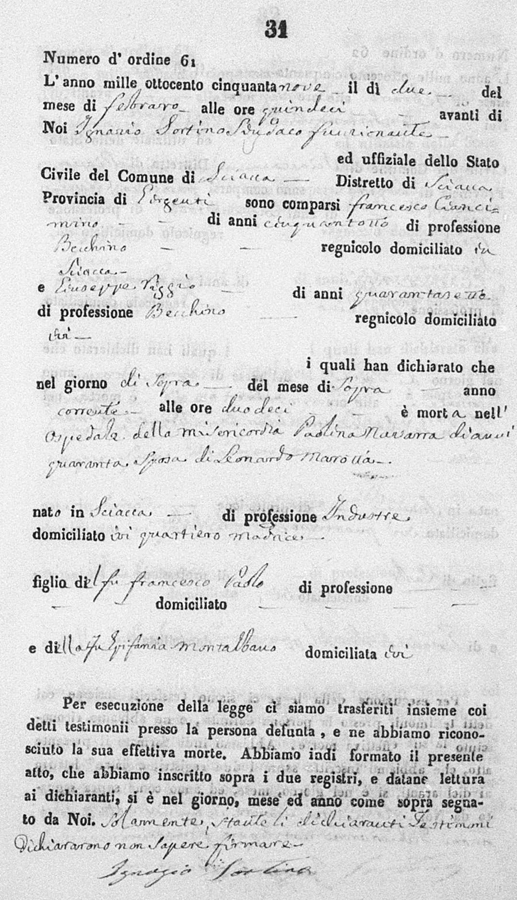 31
Numero d' ordine 61
L' anno mille ottocento cinquantanove il dì due del
mese di febraro alle ore quindeci avanti di
Noi Ignazio Sortino Sindaco funzionante
ed uffiziale dello Stato
Civile del Comune di Sciacca Distretto di Sciacca
Provincia di Girgenti sono comparsi francesco Cianci-
mino di anni cinquantotto di professione
Becchino regnicolo domiciliato in
Sciacca
e Giuseppe Piggio di anni quarantasette
di professione Becchino regnicolo domiciliato
ivi
i quali han dichiarato che
nel giorno di Sopra del mese di Sopra anno
corrente alle ore duodeci è morta nell'
Ospedale della misericordia Paolina Navarra di anni
quaranta Sposa di Leonardo Marotta
nato in Sciacca di professione Industre
domiciliato ivi quartiero madrice
figlio dil fu francesco Paolo di professione
domiciliato
e della fu Epifania Montalbano domiciliata ivi
Per esecuzione della legge ci siamo trasferiti insieme coi
detti testimonii presso la persona defunta, e ne abbiamo ricono-
sciuto la sua effettiva morte. Abbiamo indi formato il presente
atto, che abbiamo inscritto sopra i due registri, e datane lettura
ai dichiaranti, si è nel giorno, mese ed anno come sopra segna-
to da Noi. Solamente, stante li dichiaranti Testimoni
Dichiararono non sapere firmare
Ignazio Sortino